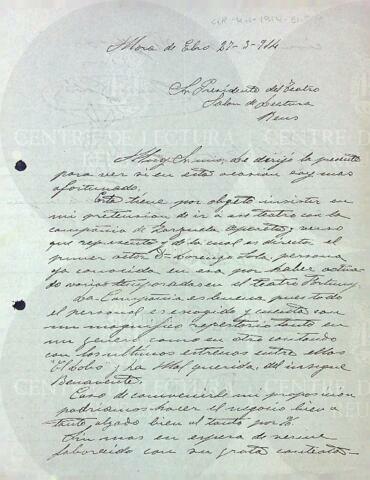 Mora de Ebro 27-3-914
Sr. Presidente del Teatro
Salon de Lectura
Reus
Muy Sr. mio, le dirijo la presente
para ver si en esta ocasion soy mas
afortunado.
Esta tiene por objeto insistir en
mi pretension de ir a ese teatro con la
compañia de Zarzuela, opereta y verso
que represento y de la cual es director el
primer actor Dn Domingo Sola, persona
ya conocida en esa por haber actua-
do varias temporadas en el teatro Fortuny.
La Compañia es buena pues todo
el personal es escogido y cuenta con
un magnifico repertorio tanto en
un genero como en otro contando
con los ultimos estrenos entre ellos
"El Lobo" y "La Malquerida" del insigne
Benavente.
Caso de convenirle mi proposicion
podriamos hacer el negocio bien a
tanto alzado bien al tanto por %.
Sin mas en espera de verme
faborecido con su grata contesta-
CENTRE DE LECTURA